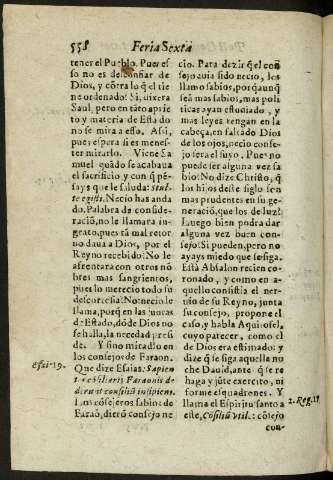 558 Feria Sexta
tener el Pueblo. Pues es
so no es desconfiar de
Dios, y contra lo que el tie
ne ordenado? Si, uviera
Saul, pero en tāto aprie
to y materia de Estado
no se mira a esso. Assi,
pues espera si es menes-
ter mirarlo. Viene Sa
muel quādo se acabava
el sacrificio y con que pē
says que le saluda: stul-
te egisti. Necio has anda
do. Palabra de conside-
ració, no le llamara in-
grato, pues tā mal retor
no dava a Dios, por el
Reyno recebido? No le
afrentara con otros nō
bres mas sangrientos,
pues lo merecio todo su
descortesia? No: necio le
llama, porq en las juntas
de Estado, dōde Dios no
se halla, la necedad presi
de. Y sino miradlo en
los consejos de Faraon.
Esai. 19.
Que dize Esaias: Sapien
tes consiliarij Faraonis de
derunt consiliū insipiens.
Los cōsejeros sabios de
Faraō, dierō consejo ne
cio. Para dezir que el con
sejo avia sido necio, les
llamo sabios, porq aunq
seā mas sabios, mas poli
ticos ayan estudiado, y
mas leyes tengan en la
cabeça, en faltādo Dios
de los ojos, necio conse-
jo sera el suyo. Pues no
puede ser alguna vez sa
bio? No dize Christo, q
los hijos deste siglo son
mas prudentes en su ge-
neració, que los de luz?
Luego bien podra dar
alguna vez buen con-
sejo? Si pueden, pero no
ayays miedo que se siga.
Està Absalon recien co-
ronado, y como en a-
quello consistia el ner-
vio de su Reyno, junta
su consejo, propone el
caso, y habla Aquitofel,
cuyo parecer, como el
de Dios era estimado: y
dize q se siga aquella no
che David, ante q se re
haga y jūte exercito, ni
forme esquadrones. Y
2. Reg. 17
llama el Espiritu santo a
este, Cōsiliū vtile: cōsejo
con-